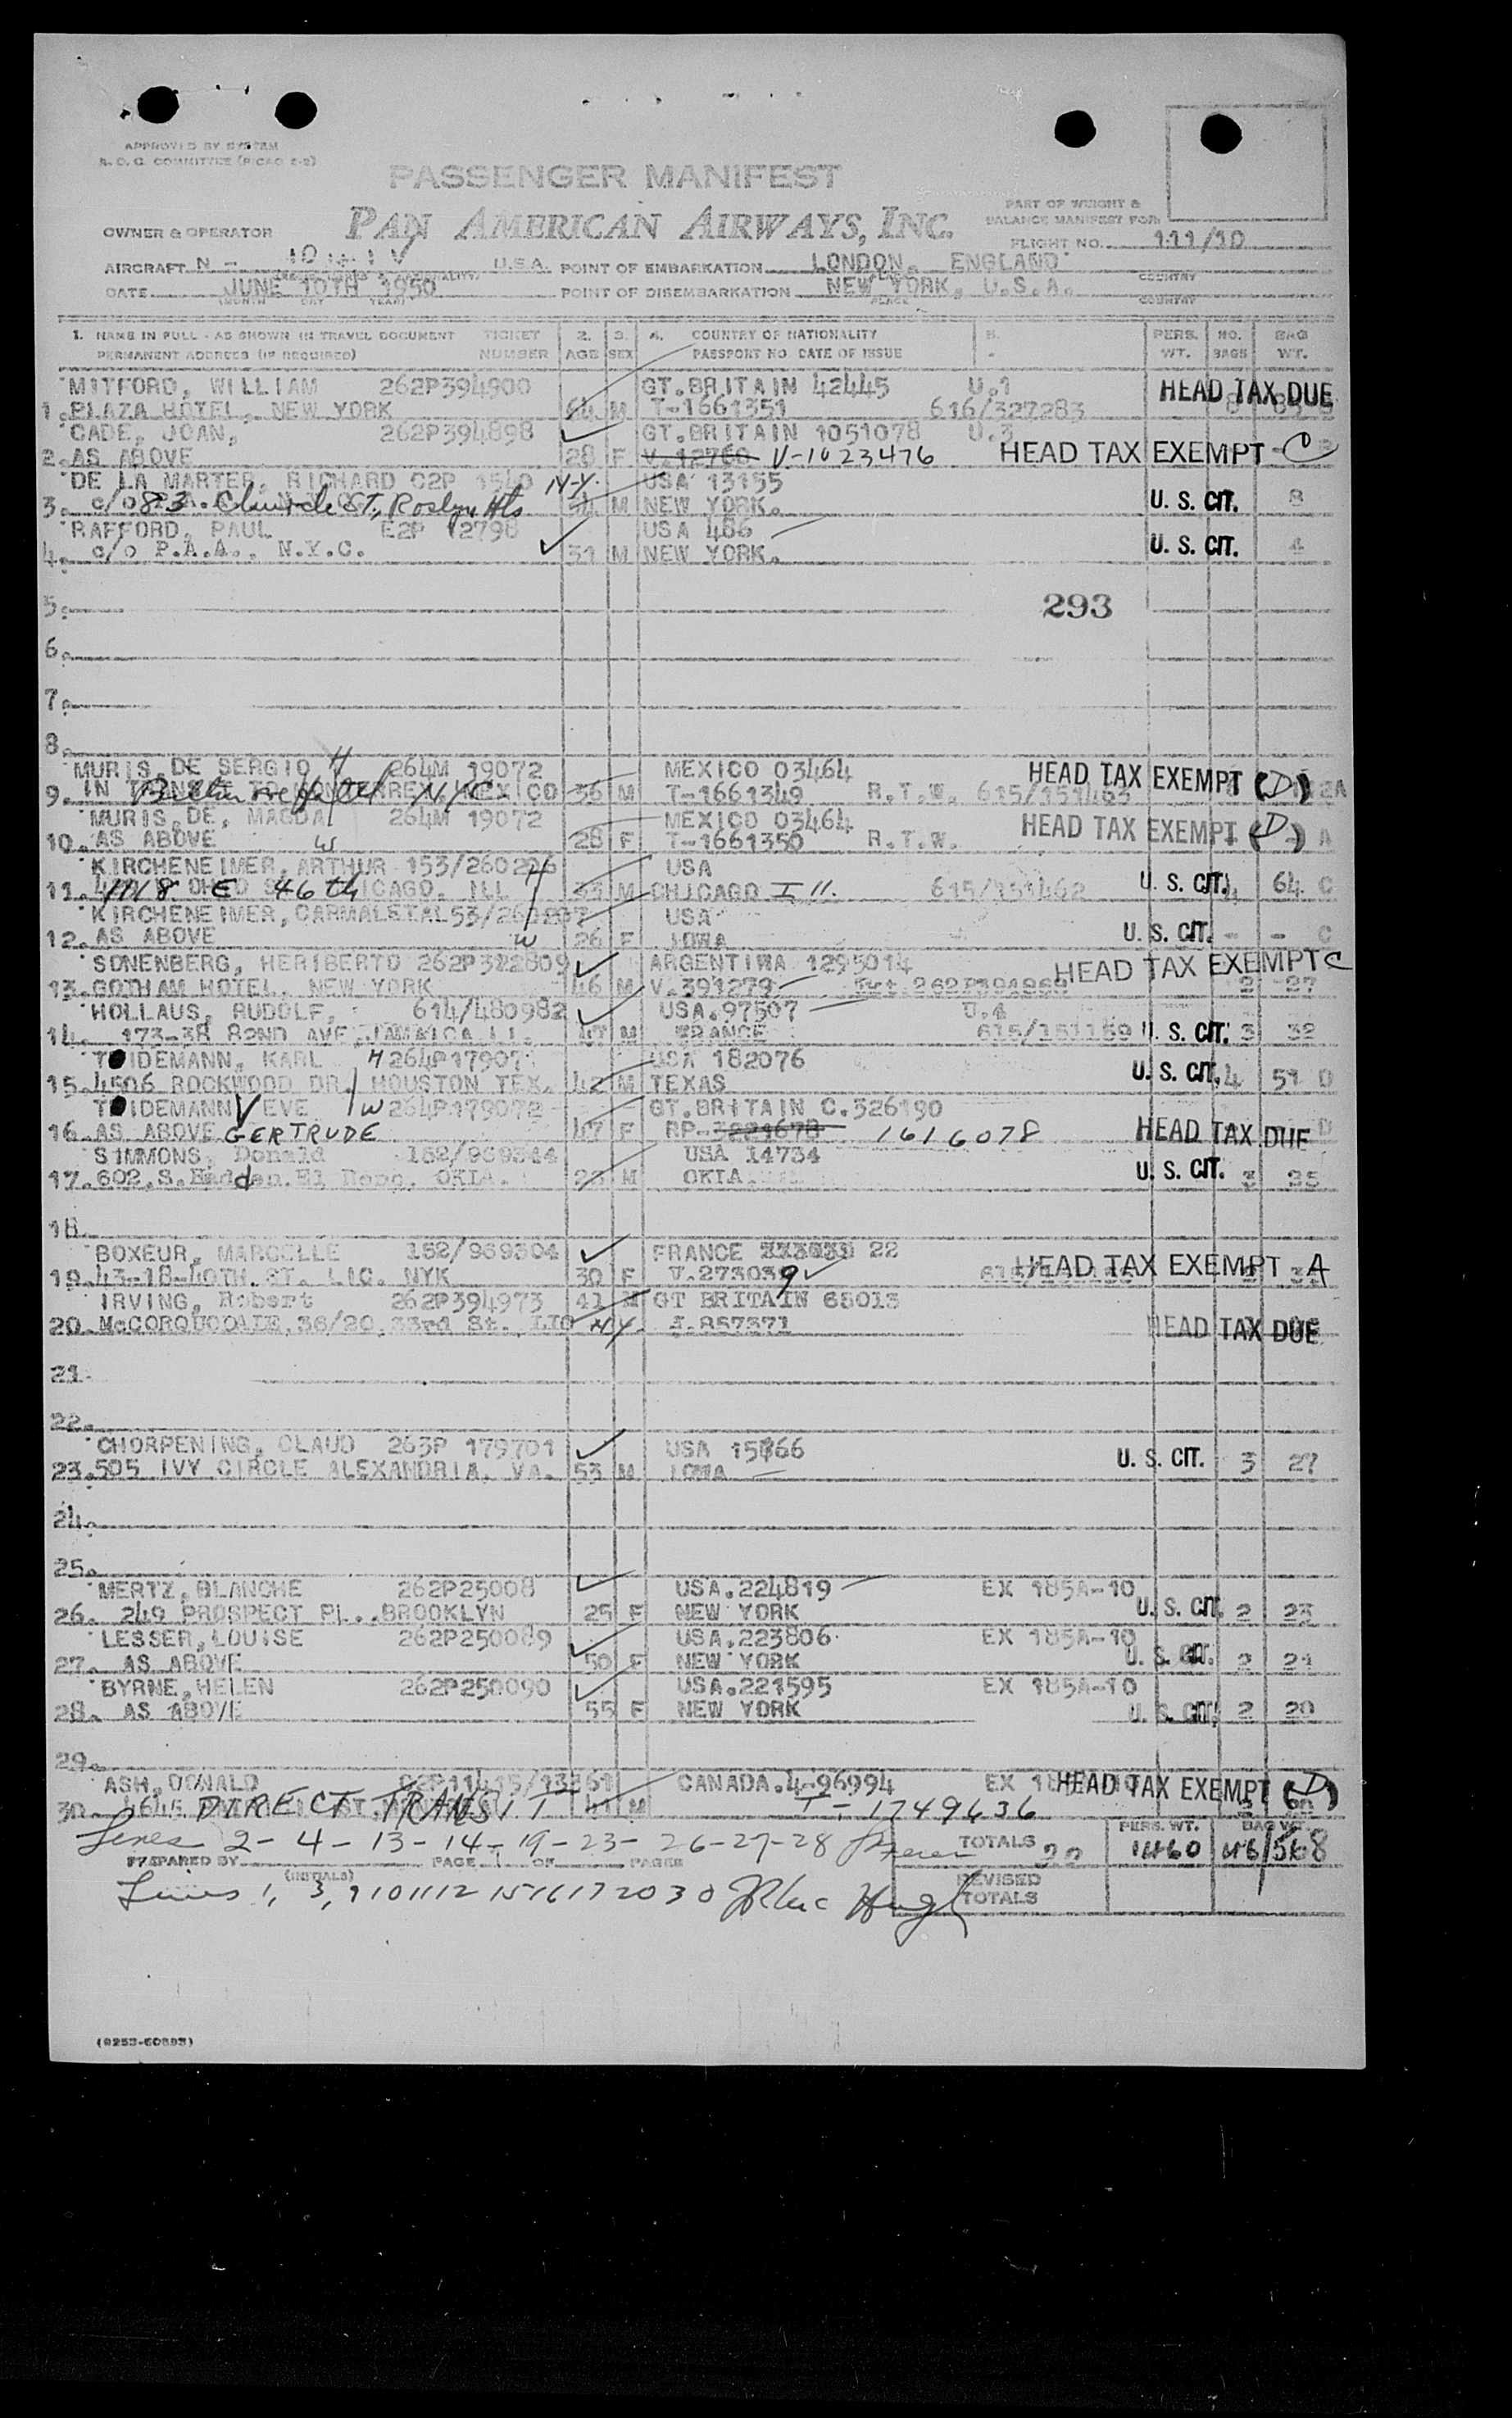 APPROVED BY SYSTEM
PASSENGER MANIFEST
PAN AMERICAN AIRWAYS, INC.
PART OF WEIGHT &
BALANCE MANIFEST FOR:
OWNER & OPERATOR
FLIGHT NO. 111/10
AIRCRAFT N - U.S.A. POINT OF EMBARKATION LONDON, ENGLAND COUNTRY
DATE JUNE 10TH 1950 POINT OF DISEMBARKATION NEW YORK, U.S.A. COUNTRY
1. NAME IN FULL - AS SHOWN IN TRAVEL DOCUMENT TICKET 2. 3. 4. COUNTRY OF NATIONALITY 5. PERS. NO. BAG
PERMANENT ADDRESS (IF REQUIRED) NUMBER AGE SEX PASSPORT NO DATE OF ISSUE WT. BAGS WT.
MITFORD, WILLIAM 262P394900 GT.BRITAIN 42445 U.1 HEAD TAX DUE
1. PLAZA HOTEL, NEW YORK 64 M T-1661351 616/327283
CADE, JOAN, 262P394898 GT.BRITAIN 1051078 U.3
2. AS ABOVE 28 F V.12760 V-1023476 HEAD TAX EXEMPT - C
DE LA MARTER, RICHARD C2P 1540 N-Y. USA 13155
3. c/o 83 St, Roslyn Hts 54 M NEW YORK. U. S. CIT. 8
RAFFORD, PAUL E2P 12798 USA 486
4. c/o P.A.A., N.Y.C. 31 M NEW YORK. U. S. CIT. 4
5. 293
6.
7.
8.
MURIS, DE SERGIO H 264M 19072 MEXICO 03464 HEAD TAX EXEMPT (D)
9. IN TRANSIT TO N.Y.C. 36 M T-1661349 R.T.W. 615/151463
MURIS, DE, MAGDA 264M 19072 MEXICO 03464 HEAD TAX EXEMPT (D) A
10. AS ABOVE W 28 F T-1661350 R.T.W.
KIRCHENEIMER, ARTHUR 153/260226 H USA
11. 1118 E 46th CHICAGO, ILL 33 M CHICAGO Ill. 615/151462 U. S. CIT. 4 64 C
KIRCHENEIMER, CARMALETA 153/260207 USA
12. AS ABOVE W 26 F IOWA U. S. CIT. - - C
SONENBERG, HERIBERTO 262P322809 ARGENTINA 1295014 HEAD TAX EXEMPT C
13. GOTHAM HOTEL, NEW YORK 46 M V.391279 2 27
HOLLAUS, RUDOLF, 614/480982 USA.97507 U.4
14. 173-38 82ND AVE JAMAICA LI. 47 M FRANCE 615/151159 U. S. CIT. 3 32
IDEMANN, KARL H 264P17907 USA 182076
15. 4506 ROCKWOOD DR. HOUSTON TEX. 42 M TEXAS U. S. CIT. 4 51 D
IDEMANN EVE W 264P179072 GT.BRITAIN C.326190
16. AS ABOVE GERTRUDE 47 F RP-3221678 1616078 HEAD TAX DUE
SIMMONS, Donald 152/969344 USA 14734
17. 602.S. OKLA. 23 M OKLA. U. S. CIT. 3 35
18.
BOXEUR, MARCELLE 152/969304 FRANCE 22
19. 43-18-40TH. ST. LIC. NYK 30 F V.273039 HEAD TAX EXEMPT A
IRVING, Robert 262P394973 41 M GT BRITAIN 68013
20. McCORQUODALE, 36/20, 33rd St. LIC NY. I.857371 HEAD TAX DUE
21.
22.
CHORPENING, CLAUD 263P 179701 USA 15866
23. 505 IVY CIRCLE ALEXANDRIA, VA. 53 M IOWA U. S. CIT. 3 27
24.
25.
MERTZ, BLANCHE 262P25008 USA.224819 EX 185A-10
26. 249 PROSPECT PL., BROOKLYN 25 F NEW YORK U. S. CIT. 2 23
LESSER, LOUISE 262P250089 USA.223806 EX 185A-10
27. AS ABOVE 50 F NEW YORK U. S. CIT. 2 21
BYRNE, HELEN 262P250090 USA.221595 EX 185A-10
28. AS ABOVE 55 F NEW YORK U. S. CIT. 2 20
29.
ASH, DONALD CANADA.4-96994 EX HEAD TAX EXEMPT (D)
30. DIRECT TRANSIT 41 M T-1749636
Lines 2-4-13-14-19-23-26-27-28 TOTALS 22 PERS. WT. 1460 BAG WT. 46/568
PREPARED BY (INITIALS) PAGE 1 OF PAGES
Lines 1, 3, 9 10 11 12 15 16 17 20 30 REVISED TOTALS
(9253-60893)